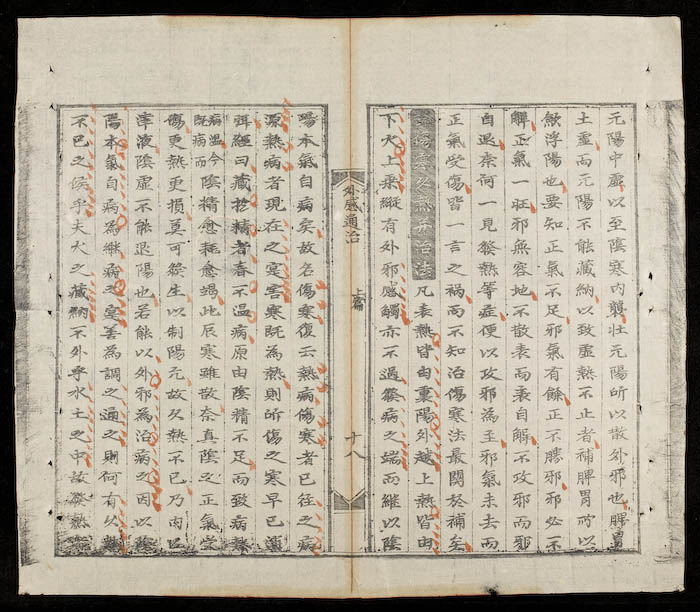 元陽中虛以至陰寒內襲壯元陽所以散外邪也脾胃
土虛而元陽不能藏納以致虛熱不止者補脾胃所以
斂浮陽也要知正氣不足邪氣有餘正不勝邪邪必不
解正氣一旺邪無容地不散表而表自解不攻邪而邪
自退柰何一見發熱等症便以攻邪為主邪氣未去而
正氣受傷皆一言之禍而不知治傷寒法最關於補矣
傷寒久熱不治法凡表熱皆由裏陽外越上熱皆由
下火上乘縱有外邪感觸亦不過發病之端而繼以陰
外感通治
上篇
十八
陽本氣自病矣故名傷寒復云熱病傷寒者已往之病
源熱病者現在之定害寒既為熱則所傷之寒早已潰
弭經曰藏於精者春不溫病原由陰精不足而致病熱
病溫今
既病而
陰精愈耗愈竭此辰寒雖散奈真陰之正氣受
傷更熱更損莫可發生以制陽元故久熱不已乃內以
津液陰虛不能退陽也若能以外邪為治病之因以陰
陽本氣自病為繼病之定善為調之通之則何有久熱
不已之候乎夫火之藏納不外乎水土之中故發熱